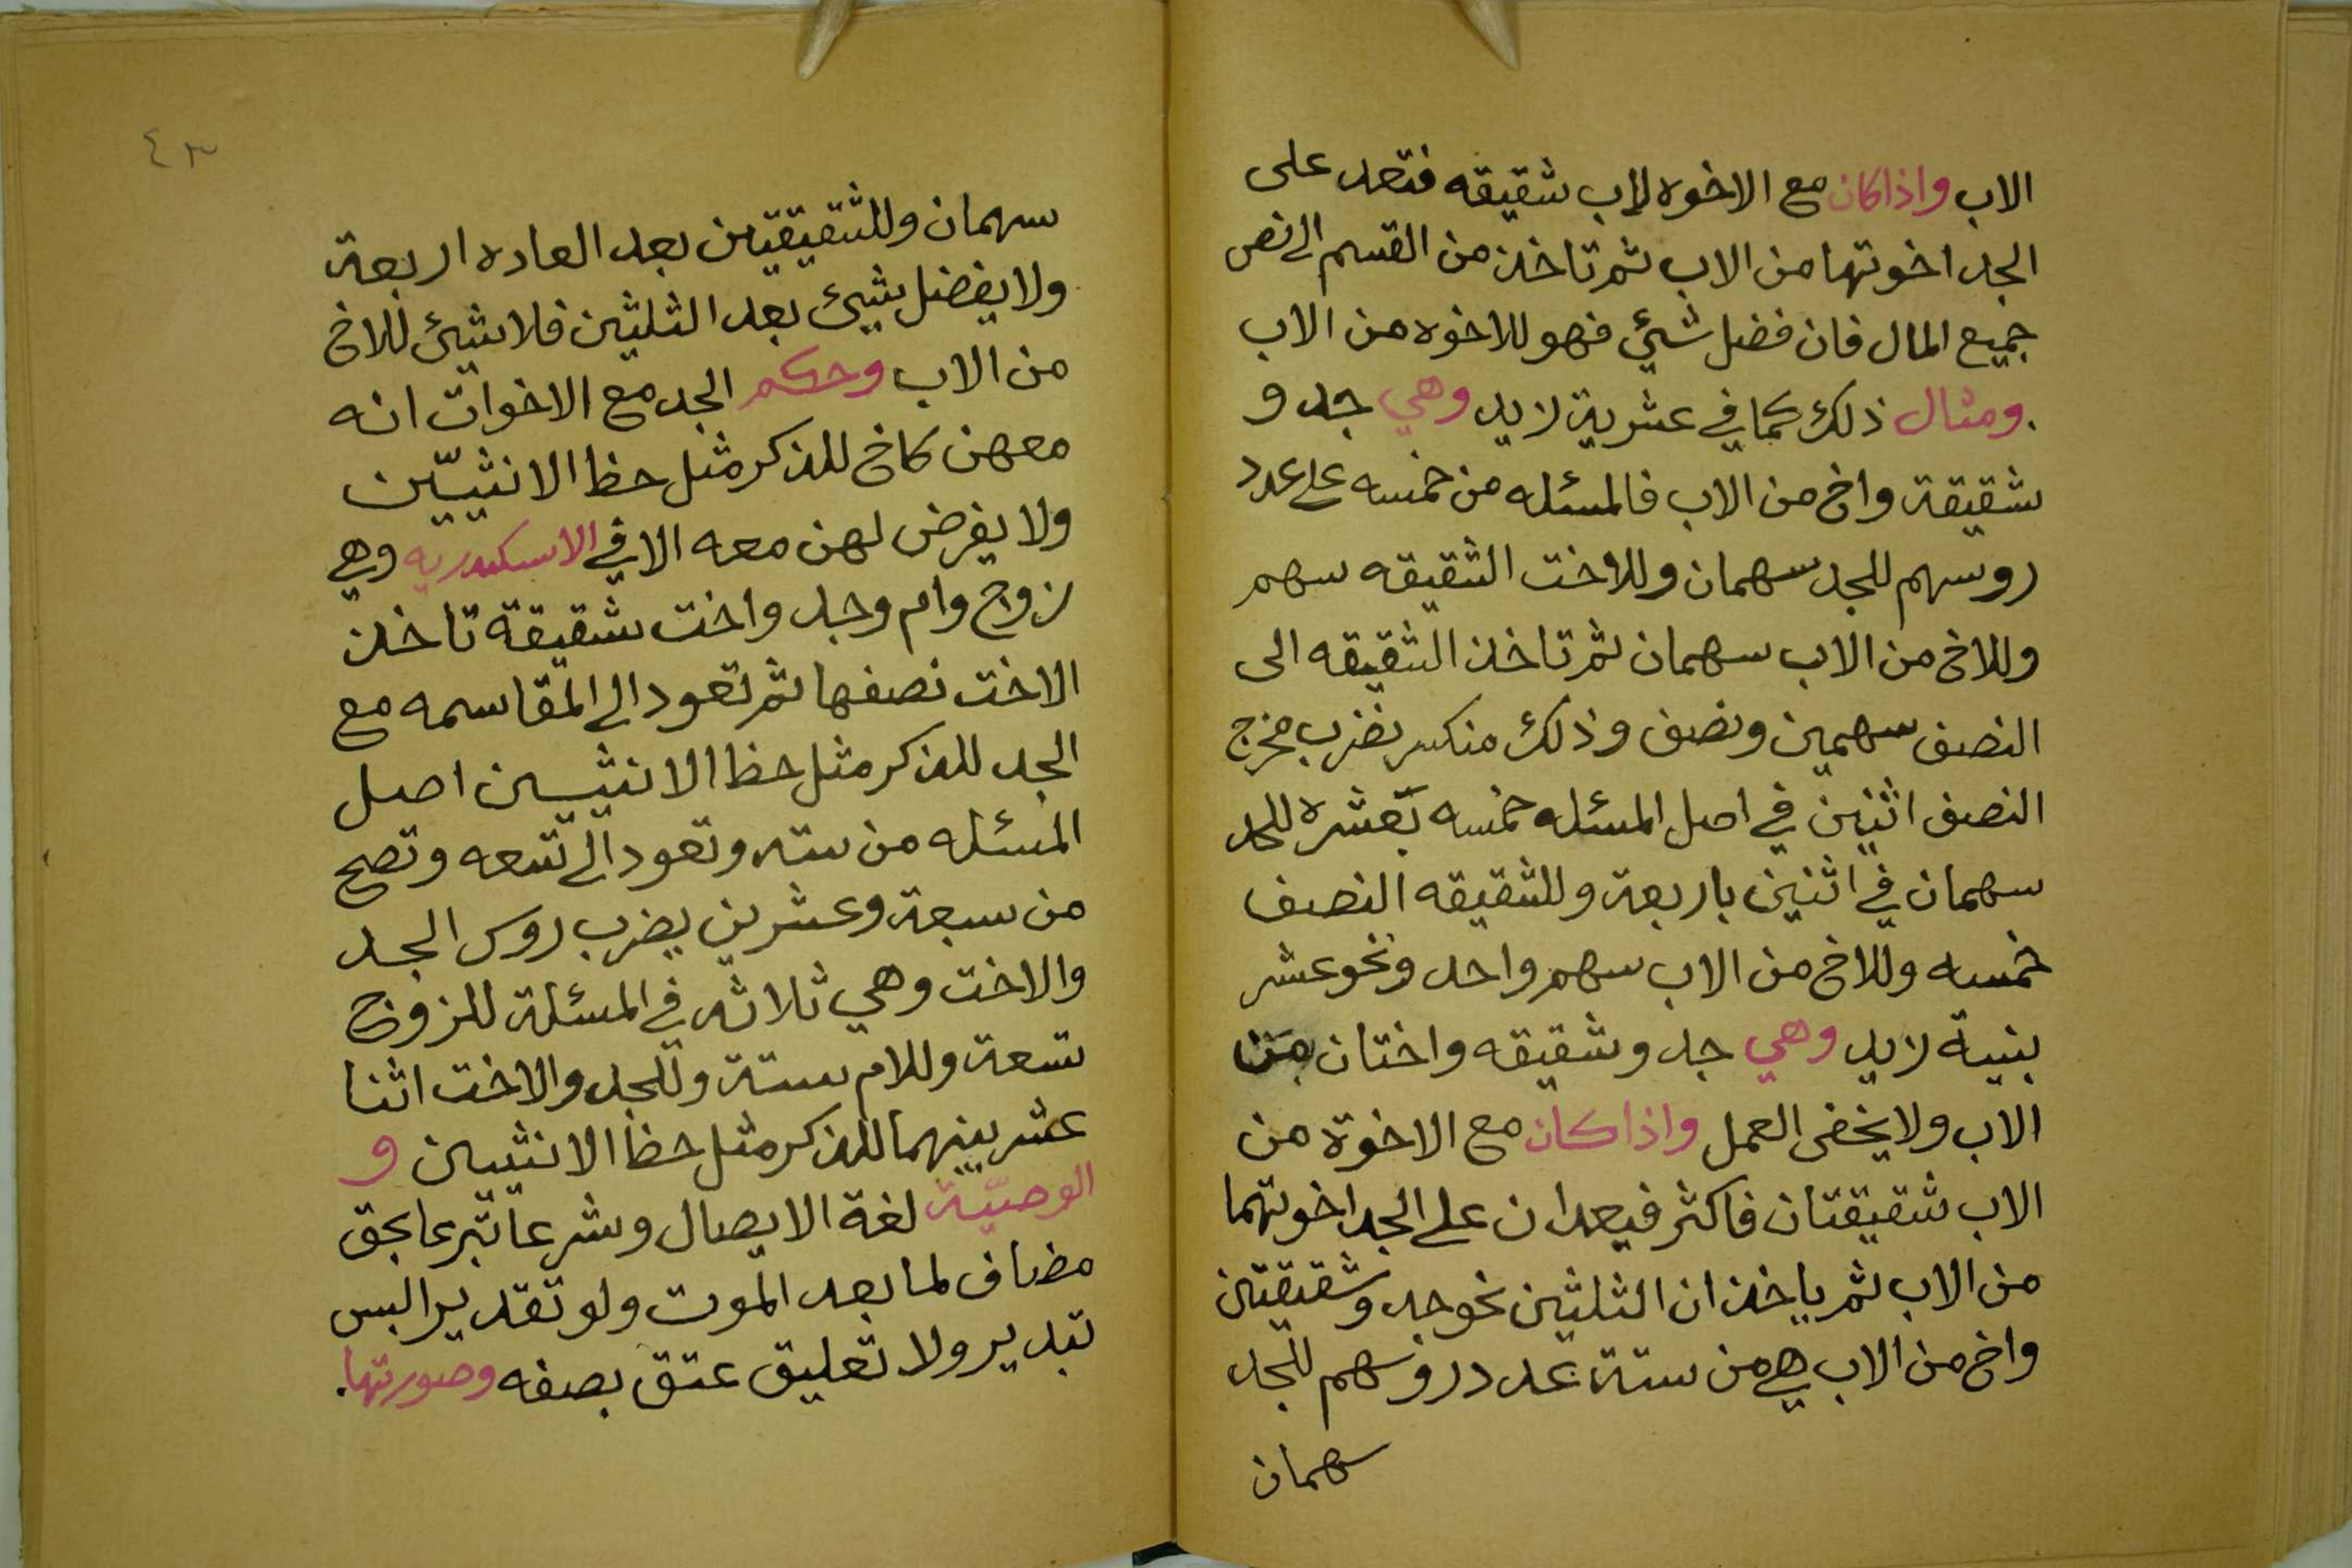 الاب واذا كان مع الاخوه لاب شقيقه فتعد على
الجد اخوتها من الاب ثم تاخذ من القسم الى نصف
جميع المال فان فضل شئ فهو للاخوه من الاب
ومثال ذلك كما في عشرية زيد وهي جد و
شقيقة واخ من الاب فالمسئله من خمسه على عدد
روسهم للجد سهمان وللاخت الشقيقه سهم
وللاخ من الاب سهمان ثم تاخذ الشقيقه الى
النصف سهمين ونصف وذلك منكسر يضرب مخرج
النصف اثنين في اصل المسئله خمسه بعشره للجد
سهمان في اثنين باربعة وللشقيقه النصف
خمسه وللاخ من الاب سهم واحد ونحو عشر
ينية زيد وهي جد وشقيقه واختان من
الاب ولا يخفى العمل واذا كان مع الاخوة من
الاب شقيقتان فاكثر فيعدان على الجد اخوتهما
من الاب ثم ياخذان الثلثين نحو جد وشقيقتين
واخ من الاب هي من ستة عدد روسهم للجد
سهمان
٤٣
سهمان وللشقيقتين بعد العاده اربعة
ولا يفضل شيئ بعد الثلثين فلا شيئ للاخ
من الاب وحكم الجد مع الاخوات انه
معهن كاخ للذكر مثل حظ الانثيّين
ولا يفرض لهن معه الا في الاسكدريه وهي
زوج وام وجد واخت شقيقة تاخذ
الاخت نصفها ثم تعود الى المقاسمه مع
الجد للذكر مثل حظ الانثيين اصل
المسئله من سته وتعود الى تسعه وتصح
من سبعة وعشرين يضرب روس الجد
والاخت وهي ثلاثه في المسئلة للزوج
تسعة وللام ستة وللجد والاخت اثنا
عشر بينهما للذكر مثل حظ الانثيين و
الوصيّة لغة الايصال وشرعا تبرعا بحق
مضاف لما بعد الموت ولو تقدير البس
تبدير ولا تعليق عتق بصفه وصورتها